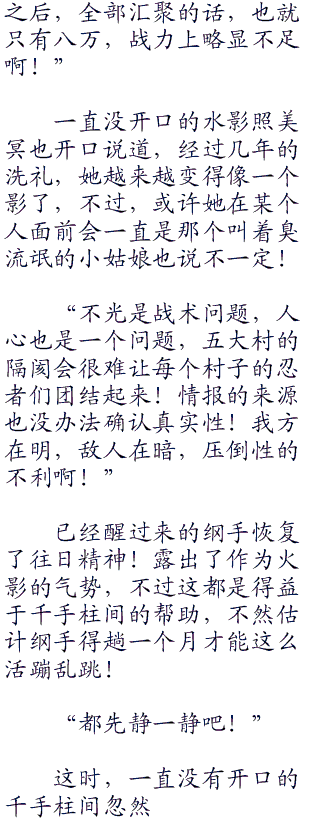 之后，全部汇聚的话，也就
只有八万，战力上略显不足
啊！”
一直没开口的水影照美
冥也开口说道，经过几年的
洗礼，她越来越变得像一个
影了，不过，或许她在某个
人面前会一直是那个叫着臭
流氓的小姑娘也说不一定！
“不光是战术问题，人
心也是一个问题，五大村的
隔阂会很难让每个村子的忍
者们团结起来！情报的来源
也没办法确认真实性！我方
在明，敌人在暗，压倒性的
不利啊！”
已经醒过来的纲手恢复
了往日精神！露出了作为火
影的气势，不过这都是得益
于千手柱间的帮助，不然估
计纲手得趟一个月才能这么
活蹦乱跳！
“都先静一静吧！”
这时，一直没有开口的
千手柱间忽然